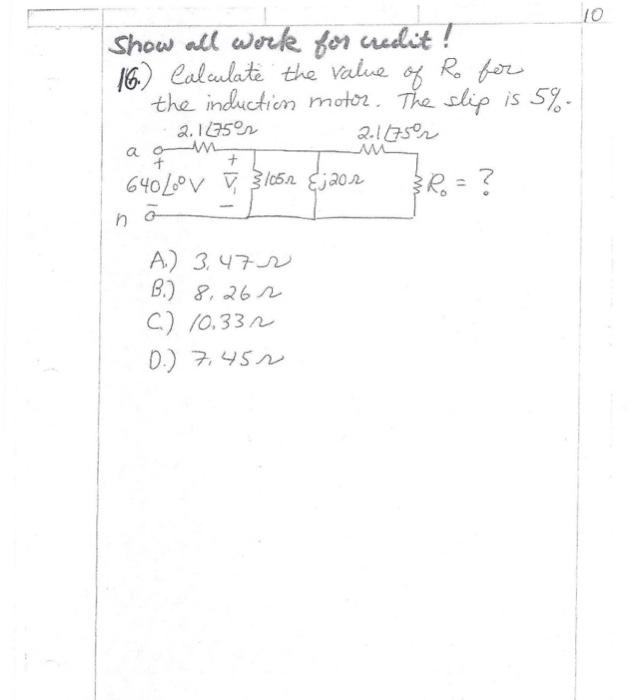 10
Show all work for credit!
16.) Calculate the value of R₀ for
the induction motor. The slip is 5%.
2.1∠75°Ω 2.1∠75°Ω
a
+ +
640∠0°V V̅₁ 105Ω j20Ω R₀ = ?
- -
n
A.) 3.47Ω
B.) 8.26Ω
C.) 10.33Ω
D.) 7.45Ω